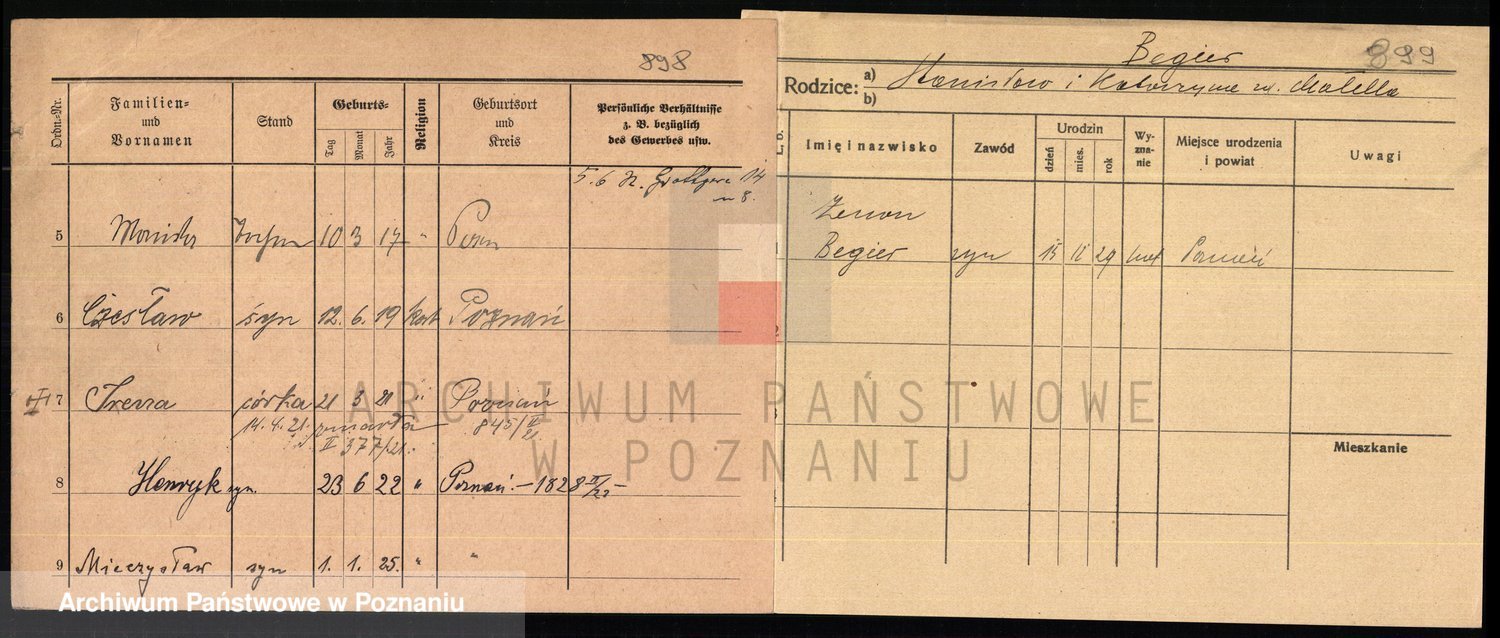 898
Ordn.-Nr.
Familien-
und
Vornamen
Stand
Geburts-
Tag
Monat
Jahr
Religion
Geburtsort
und
Kreis
Persönliche Verhältnisse
z. B. bezüglich
des Gewerbes usw.
5. 6 14
8.
5 10 3 17 "
6 Czesław syn 12. 6. 19 kat Poznań
7 Irena córka 21 3 21 " Poznań
14. 4. 21. zmarła 845/II 21
II 377/21.
8 Henryk syn. 23 6 22 " Poznań. – 1828 II/22 –
9 Mieczysław syn 1. 1. 25. " "
Begier
899
Rodzice: a) Stanisław i Katarzyna
b)
L. b.
Imię i nazwisko
Zawód
Urodzin
dzień
mies.
rok
Wy-
zna-
nie
Miejsce urodzenia
i powiat
Uwagi
Zenon
1 Begier syn 15 11 29 kat Poznań
2
3
4
Mieszkanie
ARCHIWUM PAŃSTWOWE
W POZNANIU
Archiwum Państwowe w Poznaniu